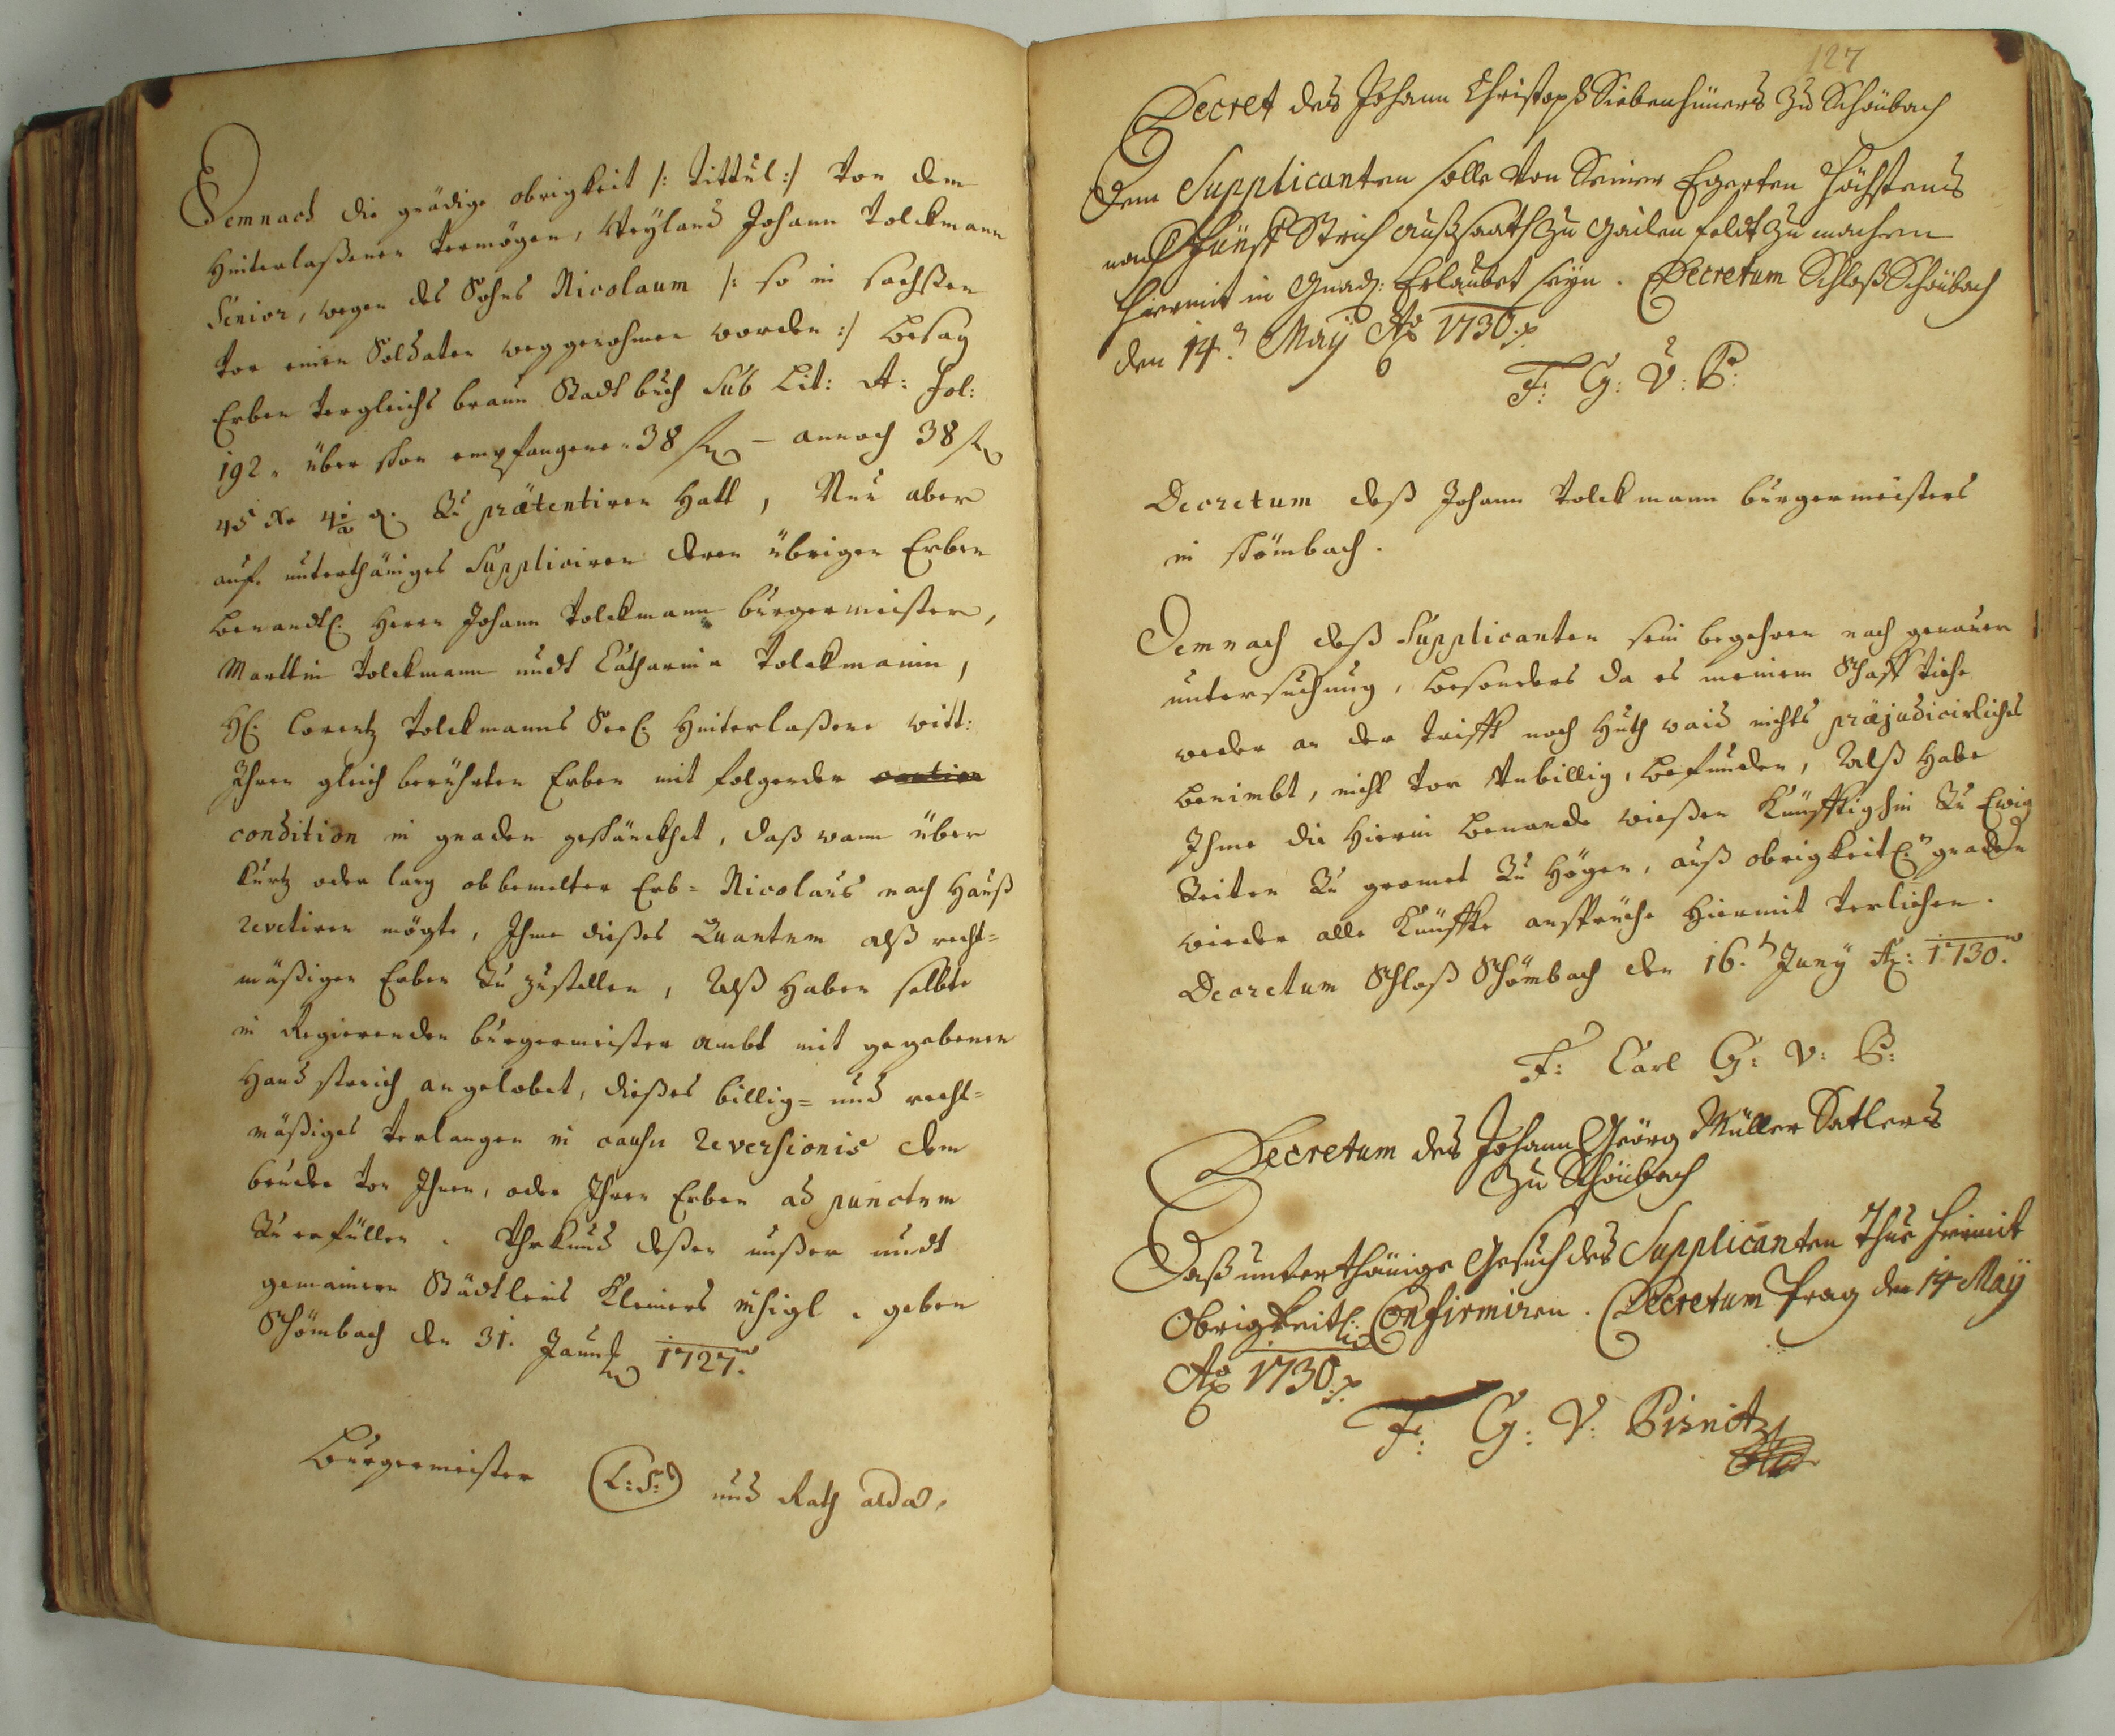 Demnach die gnädige obrigkeit /: Tittul :/ von dem
Hinterlaßenen vermögen, Weyland Johann Volckmann
Senior, wegen des Sohns Nicolaum /: so in sachßen
vor einen Soldaten weg genohmen worden :/ besag
Erben vergleichs braun Stadt buch Sub Lit: A: fol:
192. über schon empfangene 38 fl – annoch 38 fl
45 Xr 4½ d. zu prätentiren Hatt, Nun aber
auf unterthäniges Suppliciren deren übrigen Erben
benandtl. Herrn Johann Volckmann burgermeister,
Marttin Volckmann undt Catharina Volckmanin,
H. Lorentz Volckmanns Seel. Hinterlaßene witt:
Ihren gleich berührten Erben mit folgender caution
condition in gnaden geschänckhet, daß wann über
kurtz oder lang obbemelter Erb= Nicolaus nach Hauß
revetiren mögte, Ihme dießes Quantum alß recht=
mäßigen Erben zu zustellen, Alß Haben selbte
in Regierenden burgermeister ambt mit gegebenen
Hand streich angelobet, dießes billig= und recht=
mäßiges verlangen in causu reversionis dem
bruder von Ihnen, oder Ihren Erben ad punctum
zu erfüllen. Uhrkund deßen unßer undt
gemainen Städtleins kleiners insigl. geben
Schömbach den 31. Januar 1727.
Burgermeister (L:S:) und Rath alda.
127
Decret des Johann Christoph Siebenhüners zu Schönbach
Dem Supplicanten solle von Seiner Egerten Höchstens
nach Fünff Strich außsaath zu gailen feldt zu machen
hiermit in Gnad: Erlaubet seyn. Decretum Schloß Schönbach
den 14. Maij Ao 1730.
F: G: V: P:
Decretum deß Johann Volckmann burgermeisters
in schömbach.
Demnach deß Supplicanten sein begehren nach genauer
untersuchung, besonders da es meinem Schaff viehe
weder an der trifft noch Huth waid nichts präjudicirliches
benimbt, nicht vor Unbillig, befunden, Alß Habe
Ihme die Hierin benande wießen künfftighin zu Ewig
Zeiten zu gromet zu Högen, auß obrigkeitl. gnaden
wieder alle künffte ansprüche Hiermit verliehen.
Decretum Schloß Schömbach den 16. Juny Ao: 1730.
F: Carl G: v: P:
Decretum des Johann Geörg Müller Satlers
zu Schönbach
Daß unterthänige Gesuch des Supplicanten thue hiemit
Obrigkeitl: Confirmiren. Decretum Prag den 14 Maij
Ao 1730.
F: G: V: Pisnitz